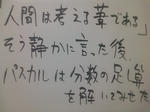 「人間は考える葦である」
そう静かに言った後、
パスカルは分数の足し算
を解いてみせた